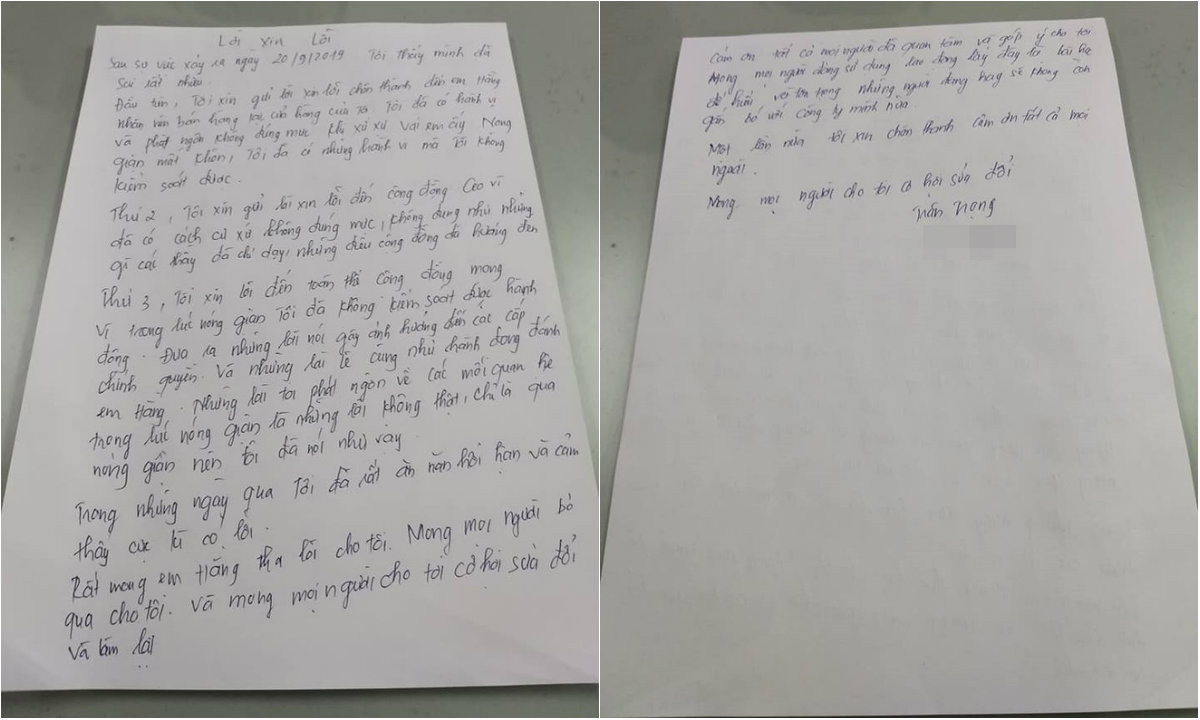 Lời xin lỗi
Sau sự việc xảy ra ngày 20/9/2019 Tôi thấy mình đã
sai rất nhiều.
Đầu tiên, Tôi xin gửi lời xin lỗi chân thành đến em Hằng
nhân viên bán hàng tại cửa hàng của tôi. Tôi đã có hành vi
và phát ngôn không đúng mực khi xử xử với em ấy. Nong
giận mất khôn, Tôi đã có những hành vi mà tôi không
kiểm soát được.
Thứ 2, Tôi xin gửi lời xin lỗi đến cộng động Ceo vì
đã có cách cư xử không đúng mực, không đúng như những
gì các thầy đã chỉ dạy, những điều cộng đồng đã hướng đến
Thứ 3, Tôi xin lỗi đến toàn thể cộng đồng mạng
Vì trong lúc nóng giận Tôi đã không kiểm soát được hành
động. Đưa ra những lời nói gây ảnh hưởng đến các cấp
chính quyền. Và những lời lẽ cũng như hành động đánh
em Hằng. Những lời tôi phát ngôn về các mối quan hệ
trong lúc nóng giận là những lời không thật, chỉ là quá
nóng giận nên tôi đã nói như vậy
Trong những ngày qua Tôi đã rất ăn năn hối hận và cảm
thấy cực kì có lỗi.
Rất mong em Hằng tha lỗi cho tôi. Mong mọi người bỏ
qua cho tôi. Và mong mọi người cho tôi cơ hội sửa đổi
Và làm lại
Cảm ơn tất cả mọi người đã quan tâm và góp ý cho tôi
Mong mọi người đừng sử dụng lao động lấy đây là bài học
để hiểu và tôn trọng những người đang hay sẽ không còn
gắn bó với công ty mình nữa.
Một lần nữa tôi xin chân thành cảm ơn tất cả mọi
người.
Mong mọi người cho tôi cơ hội sửa đổi
Trần Trọng